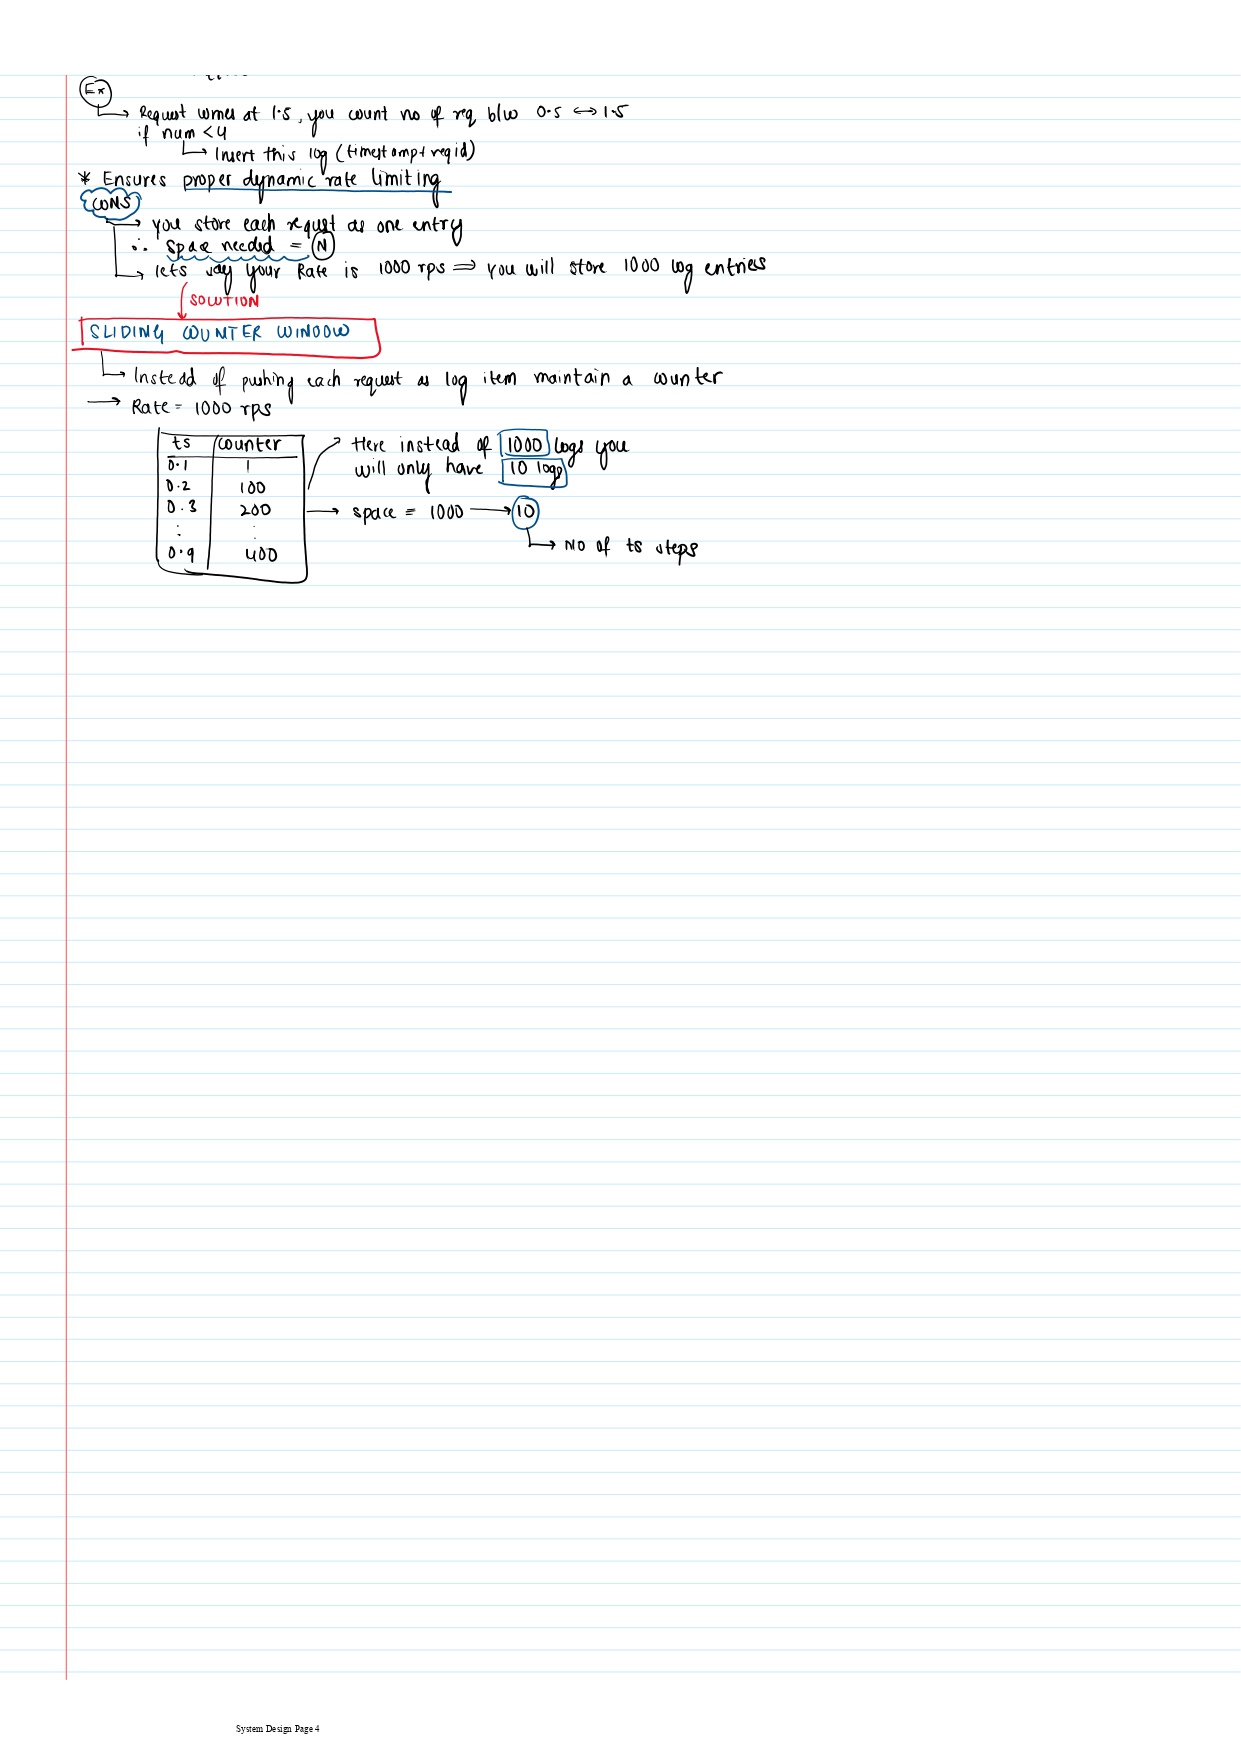 Ex
Request comes at 1.5, you count no of req b/w 0.5 ↔ 1.5
if num < 4
Insert this log (timestamp + req id)
* Ensures proper dynamic rate limiting
CONS
you store each requst as one entry
∴ Space needed = N
lets say your Rate is 1000 rps ⇒ you will store 1000 log entries
SOLUTION
SLIDING COUNTER WINDOW
Instead of pushing each request as log item maintain a counter
→ Rate = 1000 rps
ts counter
0.1 1
0.2 100
0.3 200
: :
0.9 400
Here instead of 1000 logs you
will only have 10 logs
→ space = 1000 → 10
No of ts steps
System Design Page 4